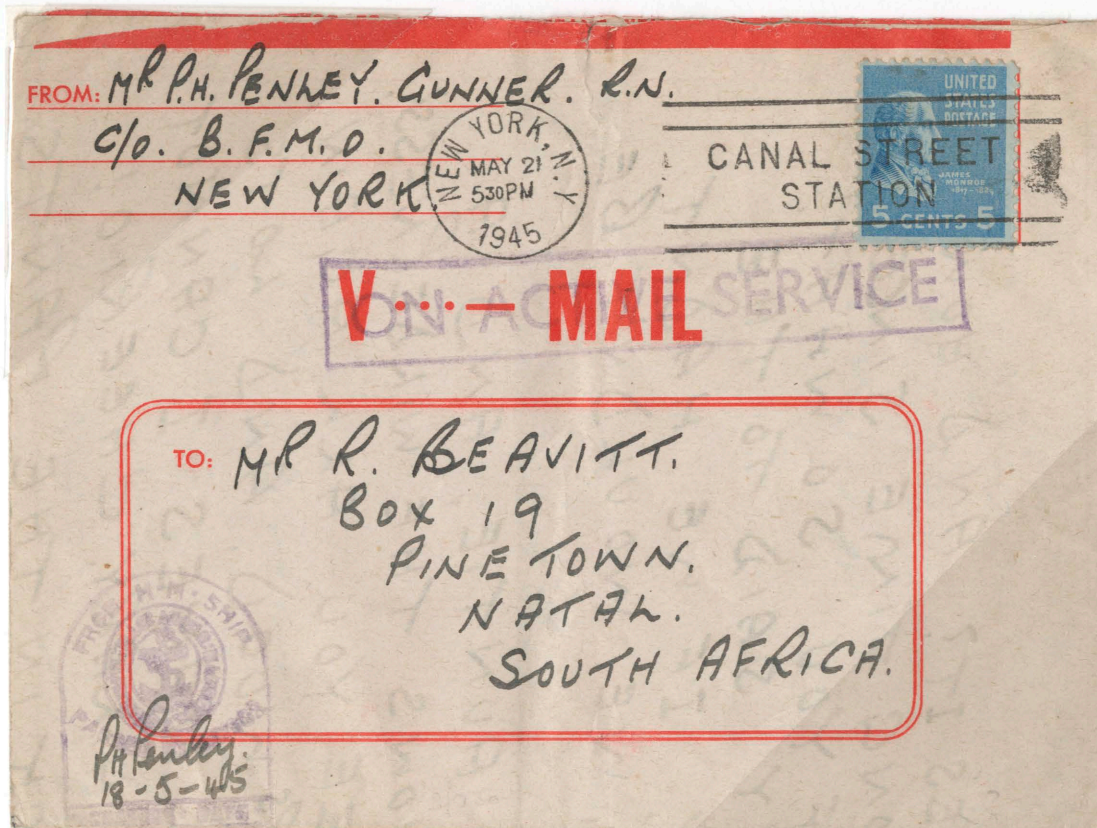 FROM: MR P.H. PENLEY. GUNNER. R.N.
C/O. B.F.M.O.
NEW YORK
NEW YORK, N.Y
MAY 21
530PM
1945
CANAL STREET
STATION
UNITED
STATES
POSTAGE
JAMES
MONROE
5 CENTS 5
ON ACTIVE SERVICE
V···— MAIL
TO: MR R. BEAVITT.
BOX 19
PINETOWN.
NATAL.
SOUTH AFRICA.
FROM H.M. SHIP
PH Penley.
18-5-45